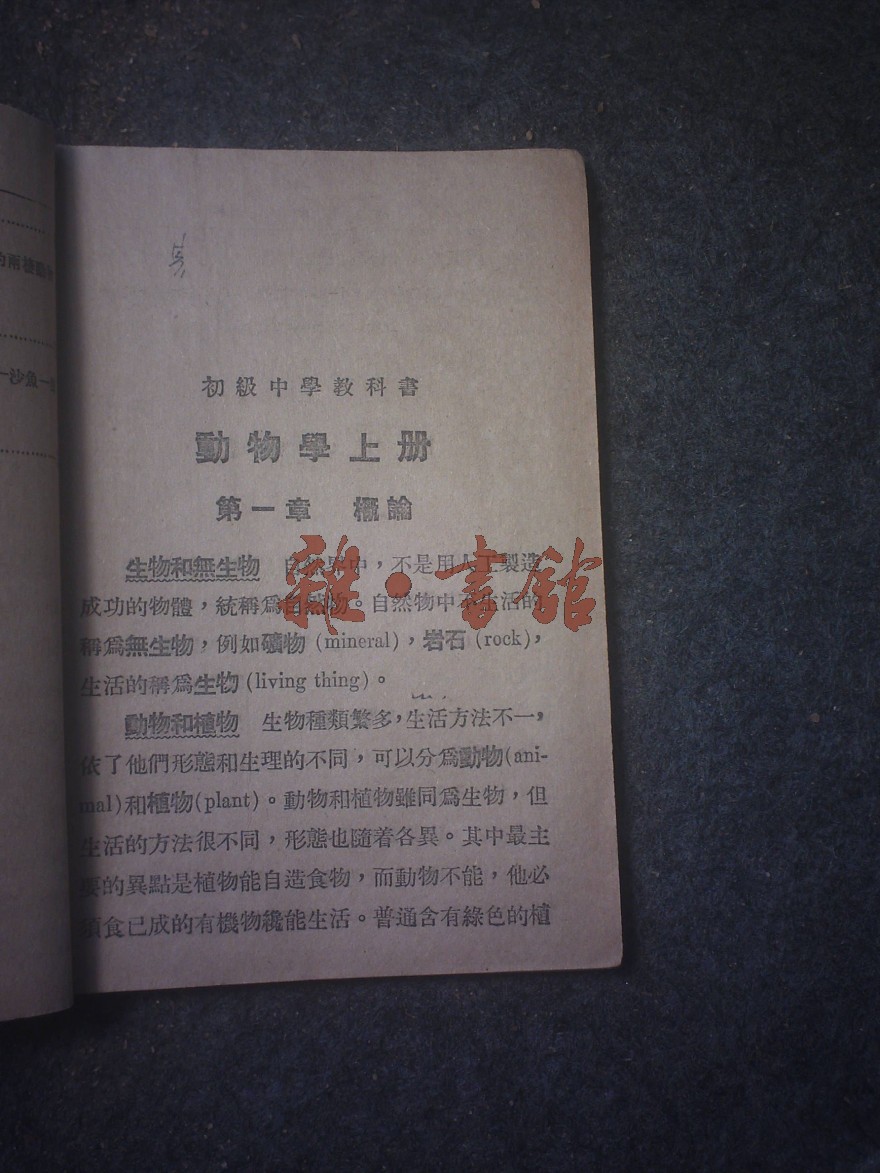 的兩棲動物
—沙魚—
初級中學教科書
動物學上册
第一章 概論
生物和無生物 自然界中，不是用人工製造
成功的物體，統稱爲自然物。自然物中不生活的
稱爲無生物，例如礦物 (mineral)，岩石 (rock)，
生活的稱爲生物 (living thing)。
動物和植物 生物種類繁多，生活方法不一，
依了他們形態和生理的不同，可以分爲動物(ani-
mal)和植物(plant)。動物和植物雖同爲生物，但
生活的方法很不同，形態也隨着各異。其中最主
要的異點是植物能自造食物，而動物不能，他必
須食已成的有機物纔能生活。普通含有綠色的植
雜·書館